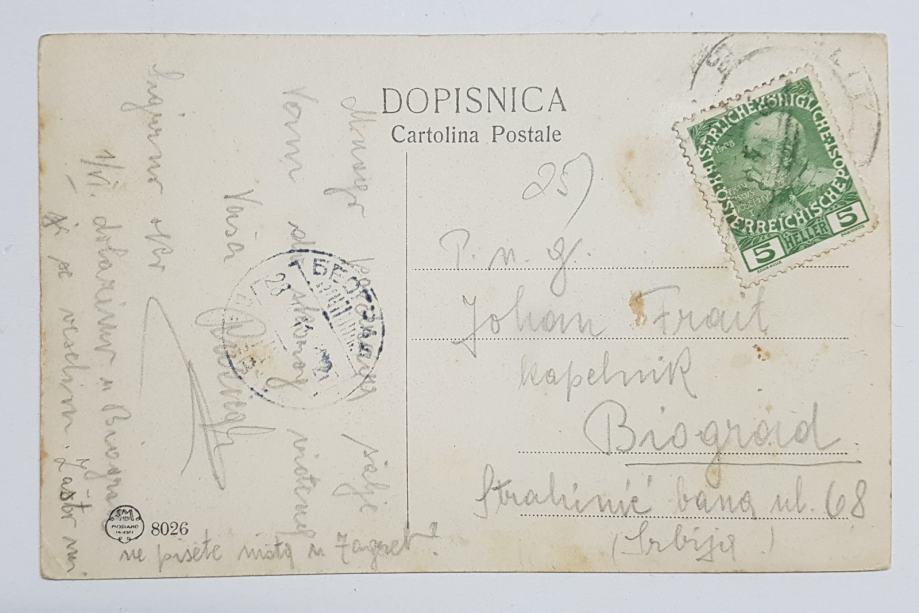 DOPISNICA
Cartolina Postale
25)
P. n. g.
Johan Frait
kapelnik
Biograd
Strahinić bana ul. 68
(Srbija)
KAISERLICHE KÖNIGLICHE ÖSTERREICHISCHE POST
5 HELLER 5
БЕОГРАД
Mnogo salje
Vam do skorog
Vaša
Sigurno oko
1/VI. dolazimo u Biograd
se veselim. Zašto mi
ne pišete ništa u Zagreb?
8026